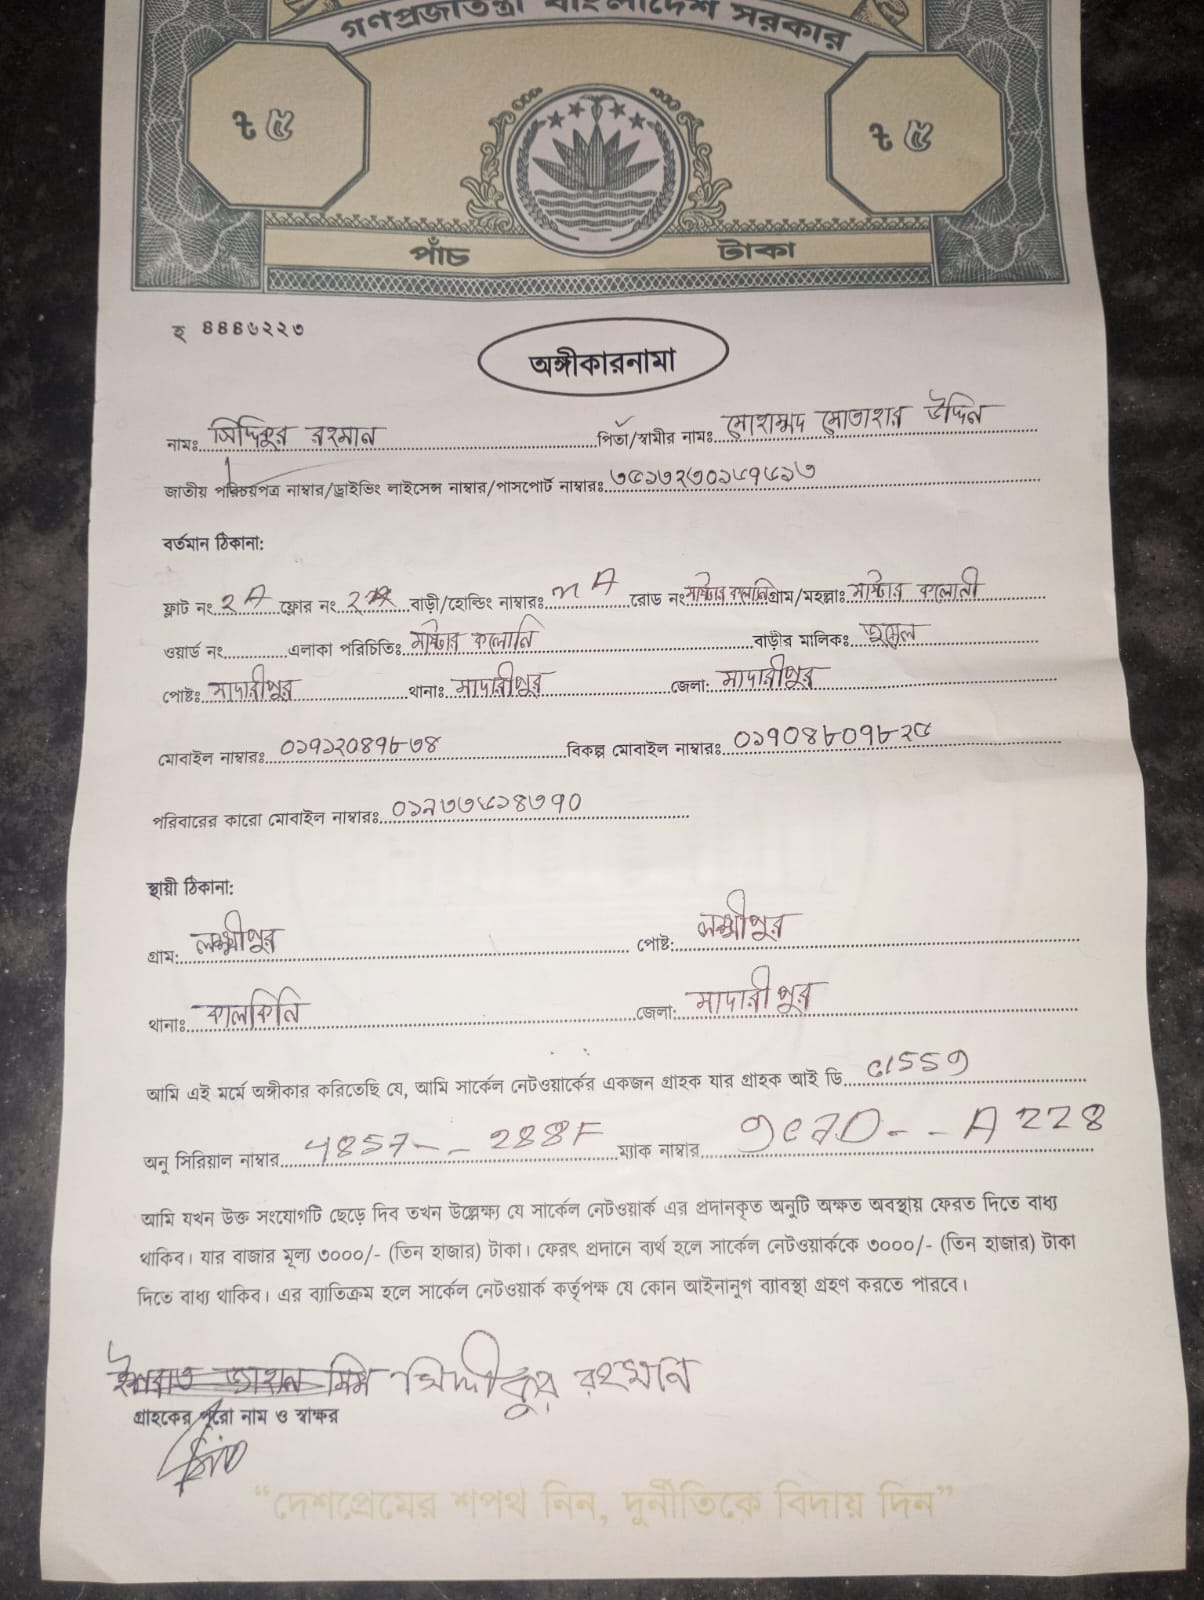 গণপ্রজাতন্ত্রী বাংলাদেশ সরকার
৳ ৫ ৳ ৫
পাঁচ টাকা
হ ৪৪৪৬২২৩
অঙ্গীকারনামা
নামঃ সিদ্দিকুর রহমান পিতা/স্বামীর নামঃ মোহাম্মদ মোতাহার উদ্দিন
জাতীয় পরিচয়পত্র নাম্বার/ড্রাইভিং লাইসেন্স নাম্বার/পাসপোর্ট নাম্বারঃ
বর্তমান ঠিকানা:
ফ্লাট নং 2 A ফ্লোর নং 2 বাড়ী/হোল্ডিং নাম্বারঃ n A রোড নং মাষ্টার কলোনি গ্রাম/মহল্লাঃ মাষ্টার কলোনী
ওয়ার্ড নং এলাকা পরিচিতিঃ মাষ্টার কলোনি বাড়ীর মালিকঃ
পোষ্টঃ মাদারীপুর থানাঃ মাদারীপুর জেলা: মাদারীপুর
মোবাইল নাম্বারঃ ০১৭১২০৪৭৮৩৪ বিকল্প মোবাইল নাম্বারঃ ০১৭০৪৮০৭৮২৫
পরিবারের কারো মোবাইল নাম্বারঃ ০১৯৩৩৫১৪৩৭০
স্থায়ী ঠিকানা:
গ্রাম: লক্ষ্মীপুর পোষ্ট: লক্ষ্মীপুর
থানাঃ কালকিনি জেলা: মাদারীপুর
আমি এই মর্মে অঙ্গীকার করিতেছি যে, আমি সার্কেল নেটওয়ার্কের একজন গ্রাহক যার গ্রাহক আই ডি
অনু সিরিয়াল নাম্বার 4857-- 288F ম্যাক নাম্বার 9C7D-- A228
আমি যখন উক্ত সংযোগটি ছেড়ে দিব তখন উল্লেক্ষ্য যে সার্কেল নেটওয়ার্ক এর প্রদানকৃত অনুটি অক্ষত অবস্থায় ফেরত দিতে বাধ্য
থাকিব। যার বাজার মূল্য ৩০০০/- (তিন হাজার) টাকা। ফেরৎ প্রদানে ব্যর্থ হলে সার্কেল নেটওয়ার্ককে ৩০০০/- (তিন হাজার) টাকা
দিতে বাধ্য থাকিব। এর ব্যাতিক্রম হলে সার্কেল নেটওয়ার্ক কর্তৃপক্ষ যে কোন আইনানুগ ব্যাবস্থা গ্রহণ করতে পারবে।
সিদ্দীকুর রহমান
গ্রাহকের পুরো নাম ও স্বাক্ষর
“দেশপ্রেমের শপথ নিন, দুর্নীতিকে বিদায় দিন”